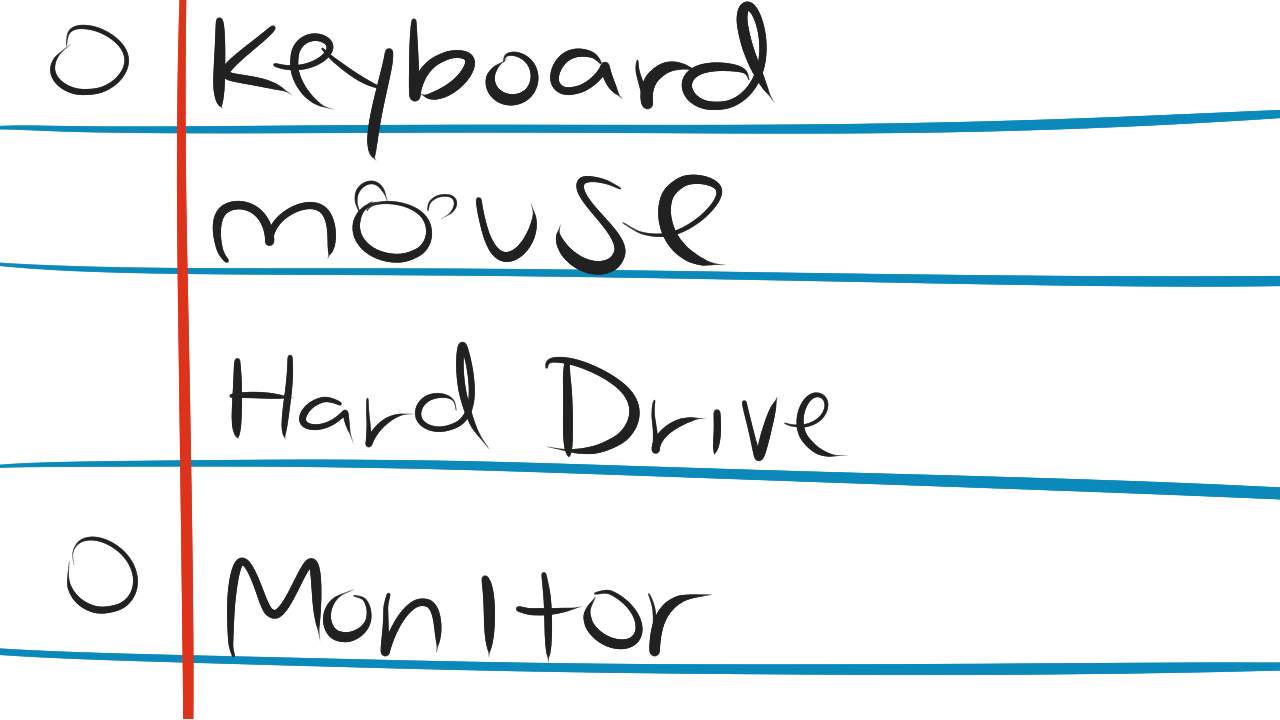 Keyboard
mouse
Hard Drive
Monitor